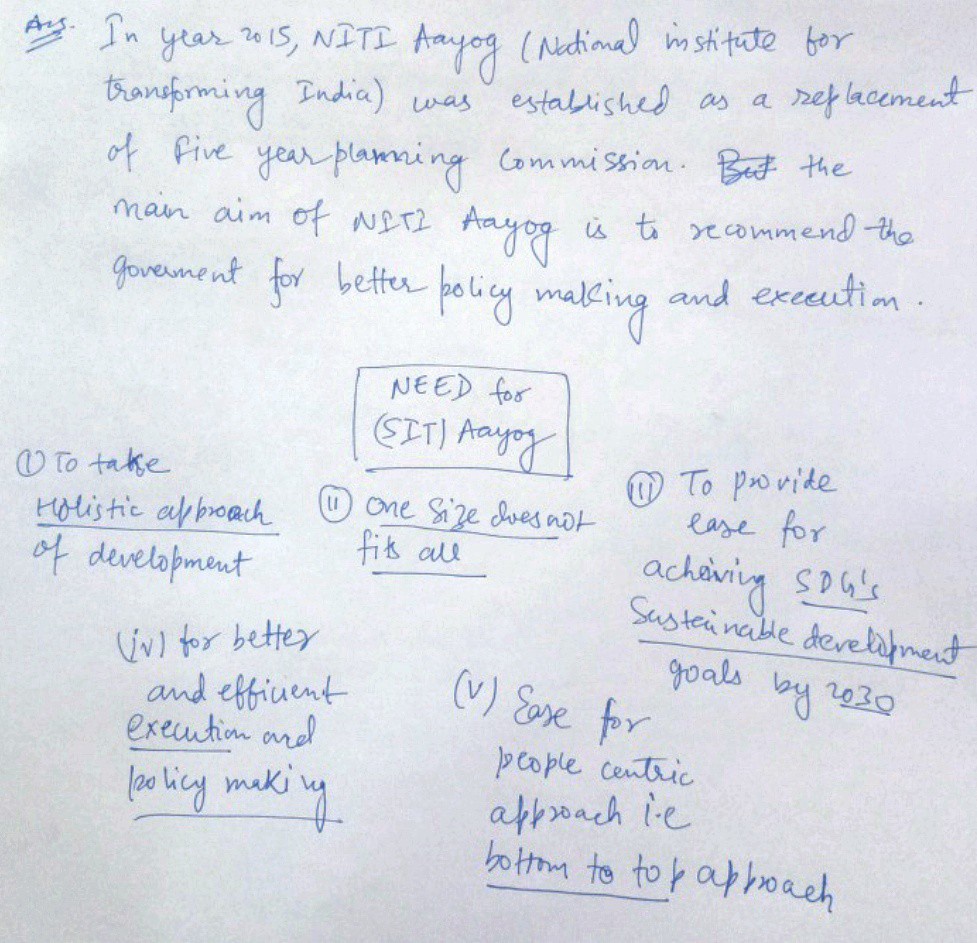 Ans. In year 2015, NITI Aayog (National institute for
transforming India) was established as a replacement
of five year planning Commission. But the
main aim of NITI Aayog is to recommend the
goverment for better policy making and execution.
NEED for
(SIT) Aayog
(I) To take
Holistic approach
of development
(II) One Size does not
fits all
(III) To provide
ease for
acheiving SDG's
Sustainable development
goals by 2030
(iv) for better
and efficient
execution and
policy making
(v) Ease for
people centric
approach i.e
bottom to top approach